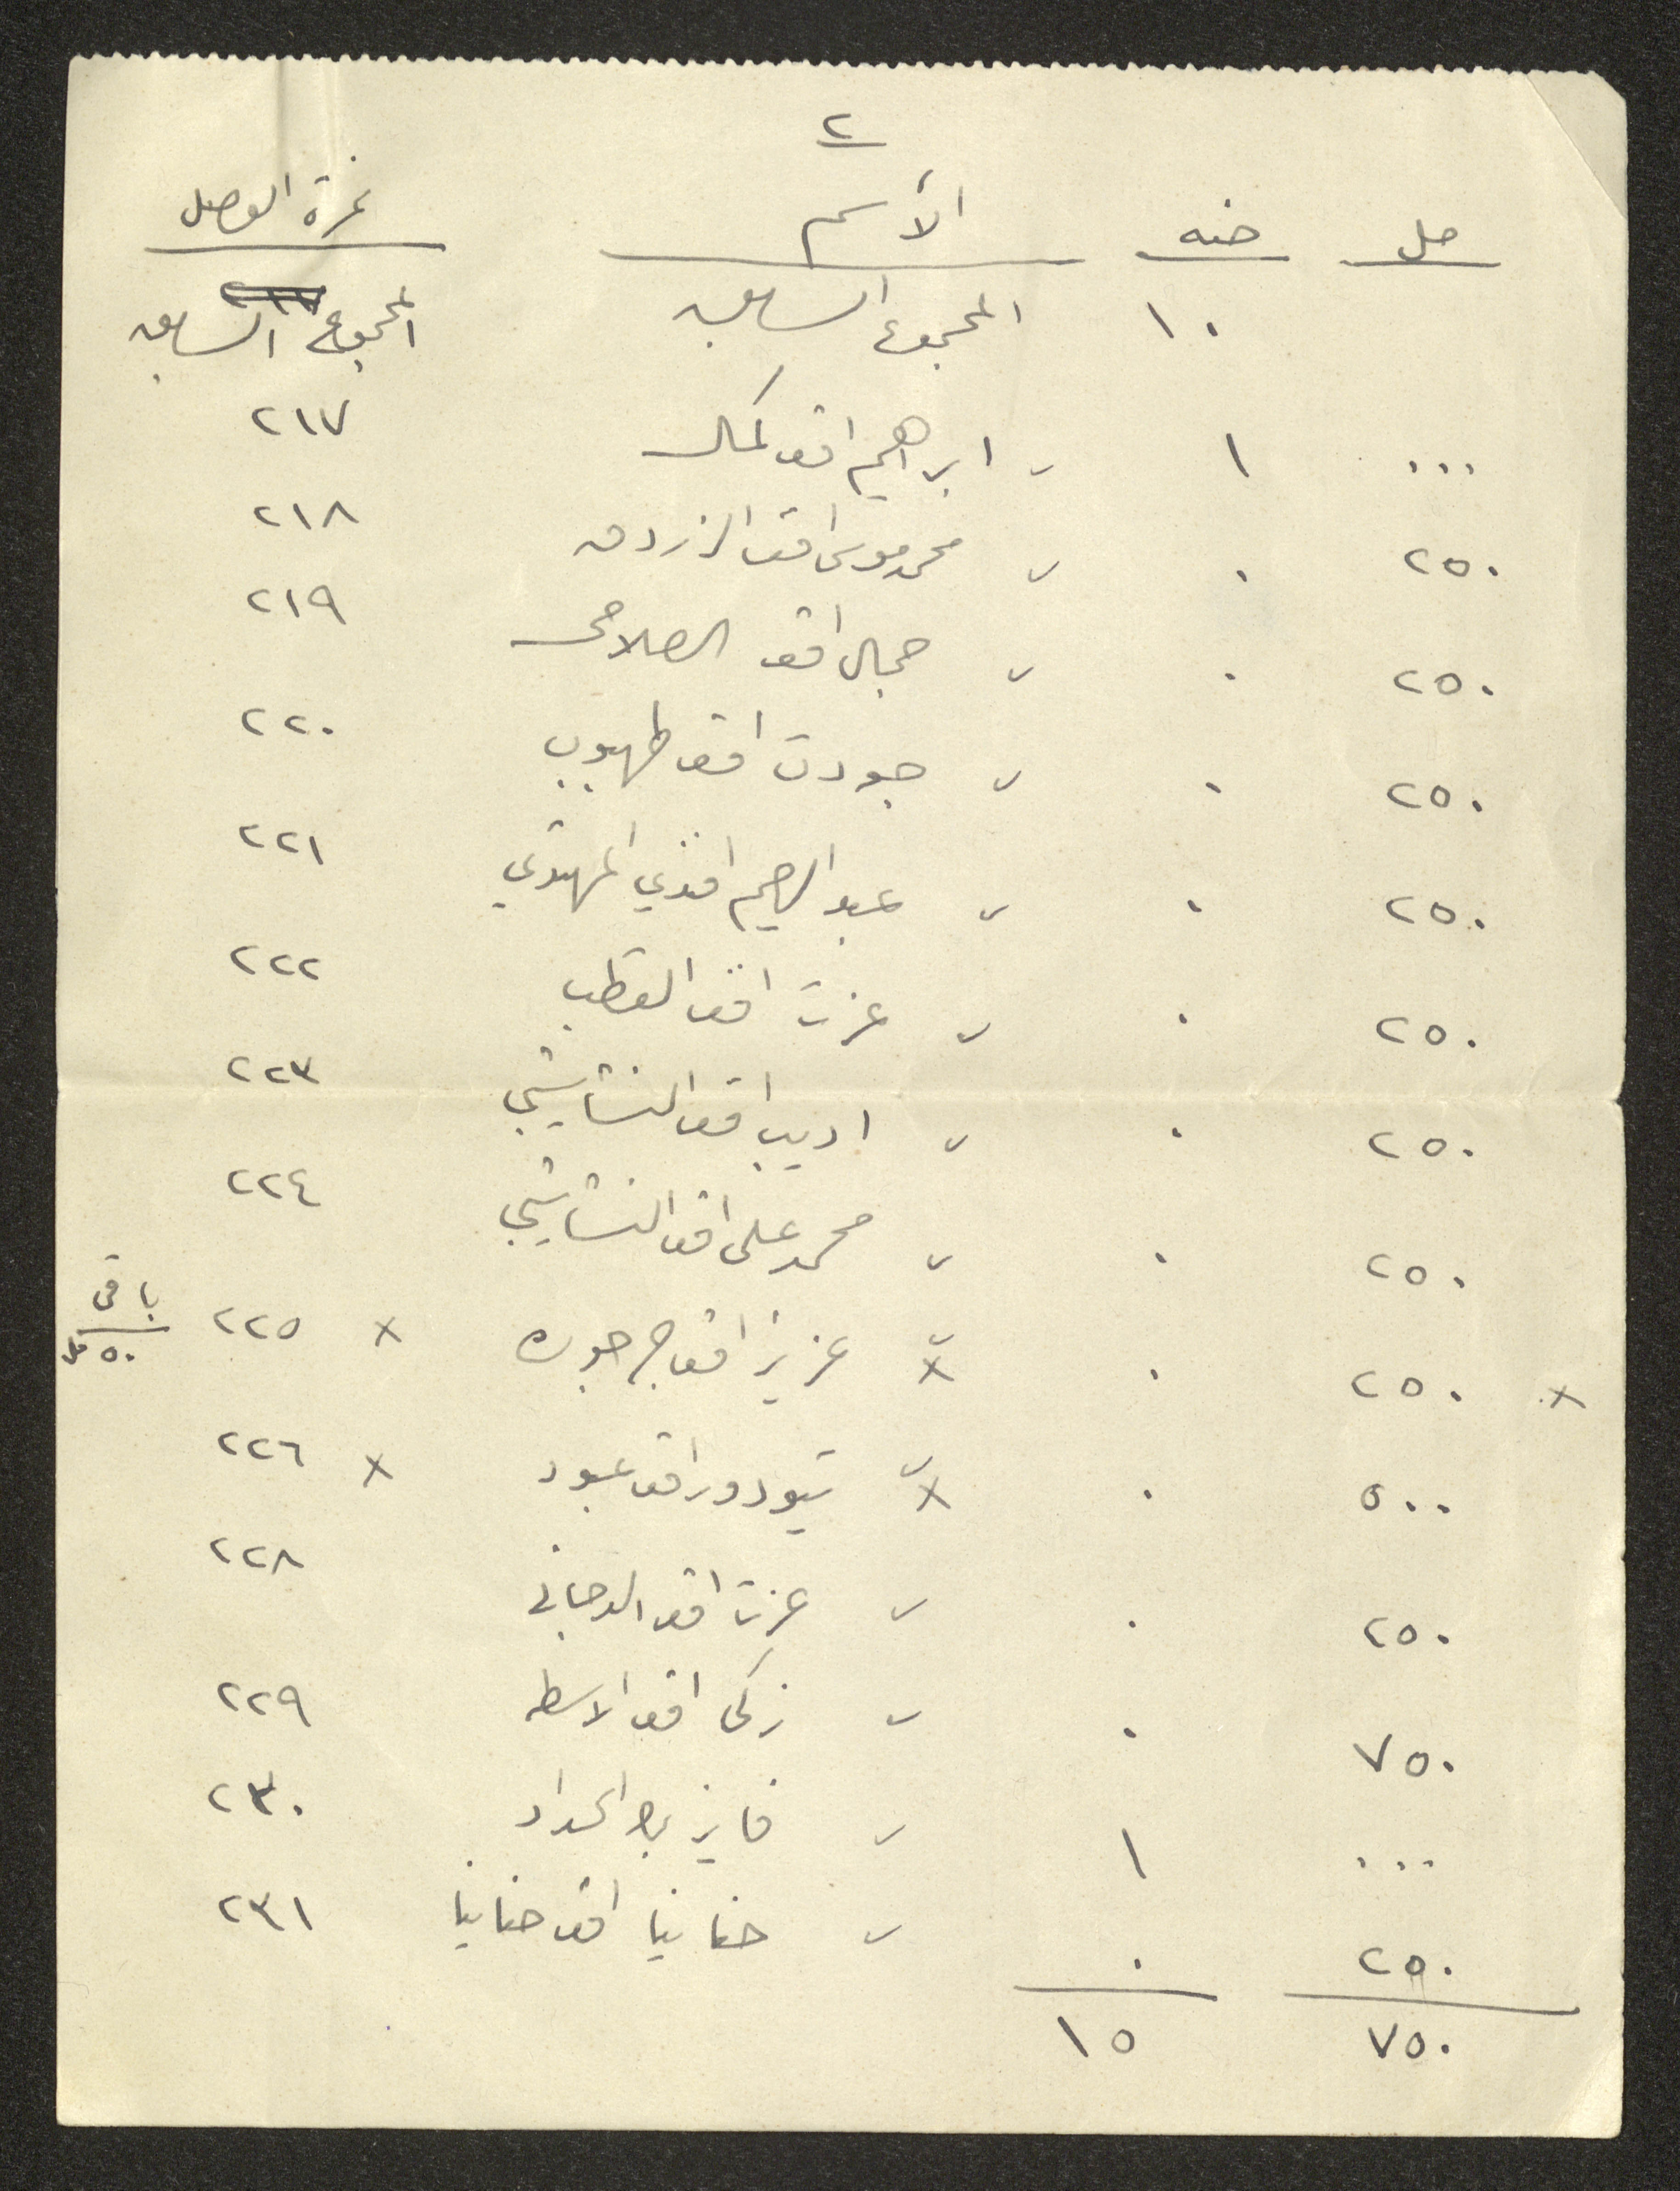 ٢
مل جنيه الأسم نمرة الوصل
١٠ المجموع السابق المجموع السابق
٠٠٠ ١ ابراهيم افند كمال ٢١٧
٢٥٠ ٠ محمد موسى افند ٢١٨
٢٥٠ ٠ جمال افند الصلاحى ٢١٩
٢٥٠ ٠ جودت افند طهبوب ٢٢٠
٢٥٠ ٠ عبد الرحيم افندي المهتدي ٢٢١
٢٥٠ ٠ عزت افند القطب ٢٢٢
٢٥٠ ٠ اديب افند النشاشيبي ٢٢٣
٢٥٠ ٠ محمد على افند النشاشيبي ٢٢٤
× ٢٥٠ ٠ × عزيز افند جرجوره × ٢٢٥ باقى ٥٠ مل
٥٠٠ ٠ × تيودور افند عبود × ٢٢٦
٢٥٠ ٠ عزت افند الدجانى ٢٢٨
٧٥٠ ٠ زكى افند الاسطه ٢٢٩
٠٠٠ ١ فايز بك الحداد ٢٣٠
٢٥٠ ٠ حنانيا افند حنانيا ٢٣١
٧٥٠ ١٥